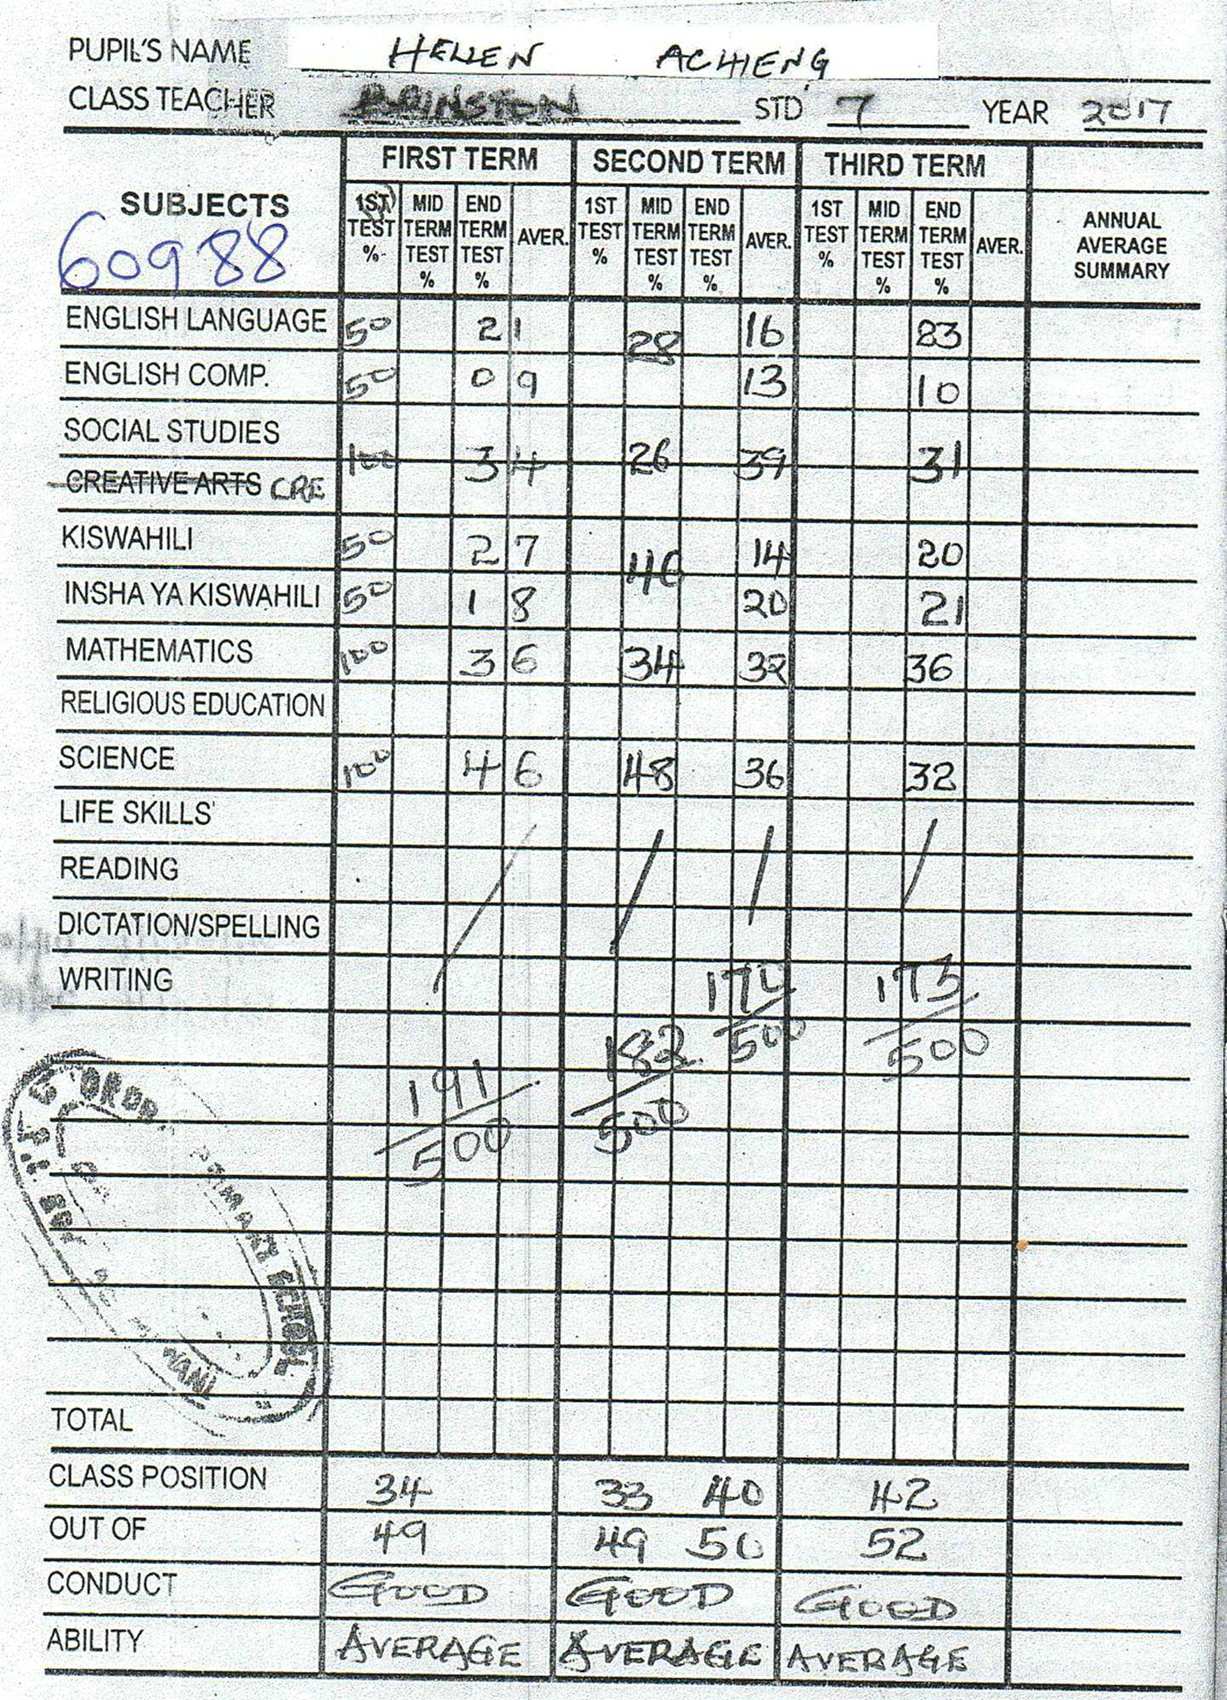 PUPIL'S NAME HELLEN ACHIENG
CLASS TEACHER STD 7 YEAR 2017
SUBJECTS FIRST TERM SECOND TERM THIRD TERM ANNUAL AVERAGE SUMMARY
1ST TEST % MID TERM TEST % END TERM TEST % AVER. 1ST TEST % MID TERM TEST % END TERM TEST % AVER. 1ST TEST % MID TERM TEST % END TERM TEST % AVER.
60988
ENGLISH LANGUAGE 50 21 28 16 23
ENGLISH COMP. 50 09 13 10
SOCIAL STUDIES
CREATIVE ARTS CRE 100 34 26 39 31
KISWAHILI 50 27 46 14 20
INSHA YA KISWAHILI 50 18 20 21
MATHEMATICS 100 36 34 32 36
RELIGIOUS EDUCATION
SCIENCE 100 46 48 36 32
LIFE SKILLS
READING
DICTATION/SPELLING
WRITING
191/500 182/500 170/500 173/500
PRIMARY SCHOOL
TOTAL
CLASS POSITION 34 33 40 42
OUT OF 49 49 50 52
CONDUCT GOOD GOOD GOOD
ABILITY AVERAGE AVERAGE AVERAGE